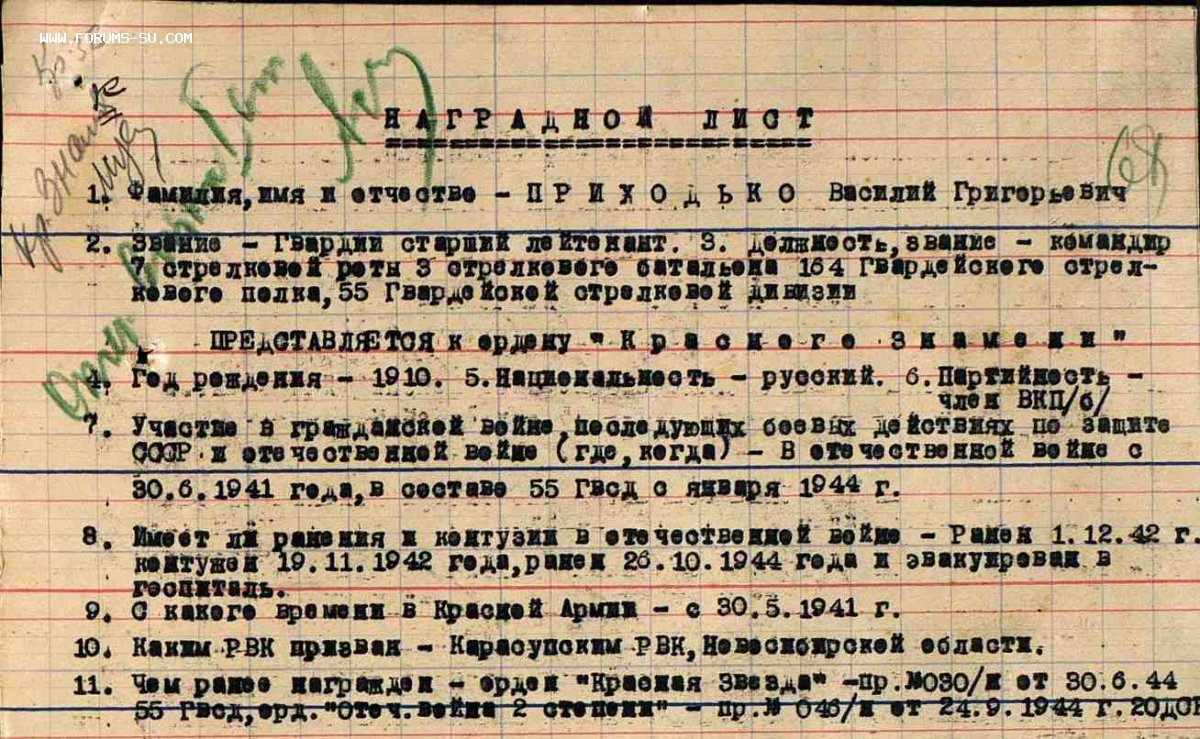 WWW.FORUMS-SU.COM
Кр. Знам
НАГРАДНОЙ ЛИСТ
1. Фамилия,имя и отчество - ПРИХОДЬКО Василий Григорьевич
2. Звание - Гвардии старший лейтенант. 3. Должность,звание - командир
7 стрелковой роты 3 стрелкового батальона 164 Гвардейского стрел-
кового полка,55 Гвардейской стрелковой дивизии
ПРЕДСТАВЛЯЕТСЯ к ордену "Красного Знамени"
4. Год рождения - 1910. 5.Национальность - русский. 6.Партийность -
член ВКП/б/
7. Участие в гражданской войне,последующих боевых действиях по защите
СССР и отечественной войне (где,когда) - В отечественной войне с
30.6.1941 года,в составе 55 Гвсд с января 1944 г.
8. Имеет ли ранения и контузии в отечественной войне - Ранен 1.12.42 г.
контужен 19.11.1942 года,ранен 26.10.1944 года и эвакуирован в
госпиталь.
9. С какого времени в Красной Армии - с 30.5.1941 г.
10. Каким РВК призван - Карасупским РВК,Новосибирской области.
11. Чем ранее награжден - орден "Красная Звезда" -пр.№030/н от 30.6.44
55 Гвсд,орд."Отеч.война 2 степени" - пр.№ 046/н от 24.9.1944 г.20